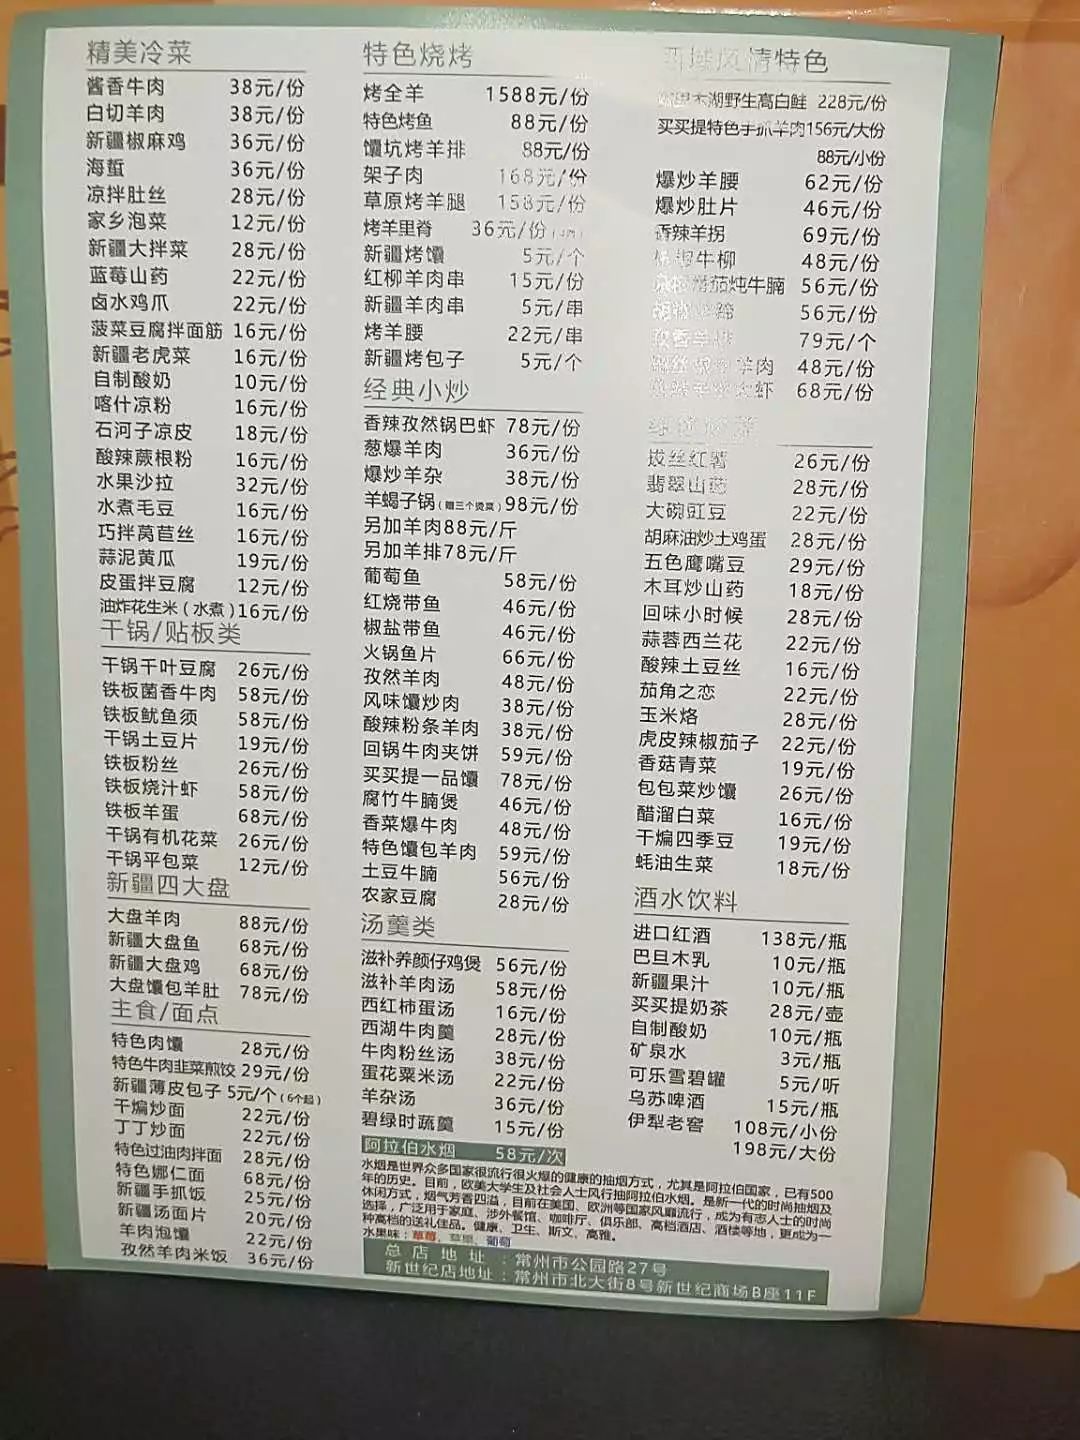 精美冷菜
酱香牛肉 38元/份
白切羊肉 38元/份
新疆椒麻鸡 36元/份
海蜇 36元/份
凉拌肚丝 28元/份
家乡泡菜 12元/份
新疆大拌菜 28元/份
蓝莓山药 22元/份
卤水鸡爪 22元/份
菠菜豆腐拌面筋 16元/份
新疆老虎菜 16元/份
自制酸奶 10元/份
喀什凉粉 16元/份
石河子凉皮 18元/份
酸辣蕨根粉 16元/份
水果沙拉 32元/份
水煮毛豆 16元/份
巧拌莴苣丝 16元/份
蒜泥黄瓜 19元/份
皮蛋拌豆腐 12元/份
油炸花生米（水煮）16元/份
干锅/贴板类
干锅千叶豆腐 26元/份
铁板菌香牛肉 58元/份
铁板鱿鱼须 58元/份
干锅土豆片 19元/份
铁板粉丝 26元/份
铁板烧汁虾 58元/份
铁板羊蛋 68元/份
干锅有机花菜 26元/份
干锅平包菜 12元/份
新疆四大盘
大盘羊肉 88元/份
新疆大盘鱼 68元/份
新疆大盘鸡 68元/份
大盘馕包羊肚 78元/份
主食/面点
特色肉馕 28元/份
特色牛肉韭菜煎饺 29元/份
新疆薄皮包子 5元/个（6个起）
干煸炒面 22元/份
丁丁炒面 22元/份
特色过油肉拌面 28元/份
特色娜仁面 68元/份
新疆手抓饭 25元/份
新疆汤面片 20元/份
羊肉泡馕 22元/份
孜然羊肉米饭 36元/份
特色烧烤
烤全羊 1588元/份
特色烤鱼 88元/份
馕坑烤羊排 88元/份
架子肉 168元/份
草原烤羊腿 158元/份
烤羊里脊 36元/份
新疆烤馕 5元/个
红柳羊肉串 15元/份
新疆羊肉串 5元/串
烤羊腰 22元/串
新疆烤包子 5元/个
经典小炒
香辣孜然锅巴虾 78元/份
葱爆羊肉 36元/份
爆炒羊杂 38元/份
羊蝎子锅（赠三个烫菜）98元/份
另加羊肉88元/斤
另加羊排78元/斤
葡萄鱼 58元/份
红烧带鱼 46元/份
椒盐带鱼 46元/份
火锅鱼片 66元/份
孜然羊肉 48元/份
风味馕炒肉 38元/份
酸辣粉条羊肉 38元/份
回锅牛肉夹饼 59元/份
买买提一品馕 78元/份
腐竹牛腩煲 46元/份
香菜爆牛肉 48元/份
特色馕包羊肉 59元/份
土豆牛腩 56元/份
农家豆腐 28元/份
汤羹类
滋补养颜仔鸡煲 56元/份
滋补羊肉汤 58元/份
西红柿蛋汤 16元/份
西湖牛肉羹 28元/份
牛肉粉丝汤 38元/份
蛋花粟米汤 22元/份
羊杂汤 36元/份
碧绿时蔬羹 15元/份
阿拉伯水烟 58元/次
风情特色
木湖野生高白鲑 228元/份
买买提特色手抓羊肉156元/大份
88元/小份
爆炒羊腰 62元/份
爆炒肚片 46元/份
香辣羊拐 69元/份
牛柳 48元/份
番茄炖牛腩 56元/份
56元/份
79元/个
羊肉 48元/份
虾 68元/份
拔丝红薯 26元/份
翡翠山药 28元/份
大碗豇豆 22元/份
胡麻油炒土鸡蛋 28元/份
五色鹰嘴豆 29元/份
木耳炒山药 18元/份
回味小时候 28元/份
蒜蓉西兰花 22元/份
酸辣土豆丝 16元/份
茄角之恋 22元/份
玉米烙 28元/份
虎皮辣椒茄子 22元/份
香菇青菜 19元/份
包包菜炒馕 26元/份
醋溜白菜 16元/份
干煸四季豆 19元/份
蚝油生菜 18元/份
酒水饮料
进口红酒 138元/瓶
巴旦木乳 10元/瓶
新疆果汁 10元/瓶
买买提奶茶 28元/壶
自制酸奶 10元/瓶
矿泉水 3元/瓶
可乐雪碧罐 5元/听
乌苏啤酒 15元/瓶
伊犁老窖 108元/小份
198元/大份
水烟是世界众多国家很流行很火爆的健康的抽烟方式，尤其是阿拉伯国家，已有500
年的历史。目前，欧美大学生及社会人士风行抽阿拉伯水烟。是新一代的时尚抽烟及
休闲方式，烟气芳香四溢，目前在美国、欧洲等国家风靡流行，成为有志人士的时尚
选择，广泛用于家庭、涉外餐馆、咖啡厅、俱乐部、高档酒店、酒楼等地，更成为一
种高档的送礼佳品。健康、卫生、斯文、高雅。
水果味：草莓、苹果、葡萄
总店地址：常州市公园路27号
新世纪店地址：常州市北大街8号新世纪商场B座11F